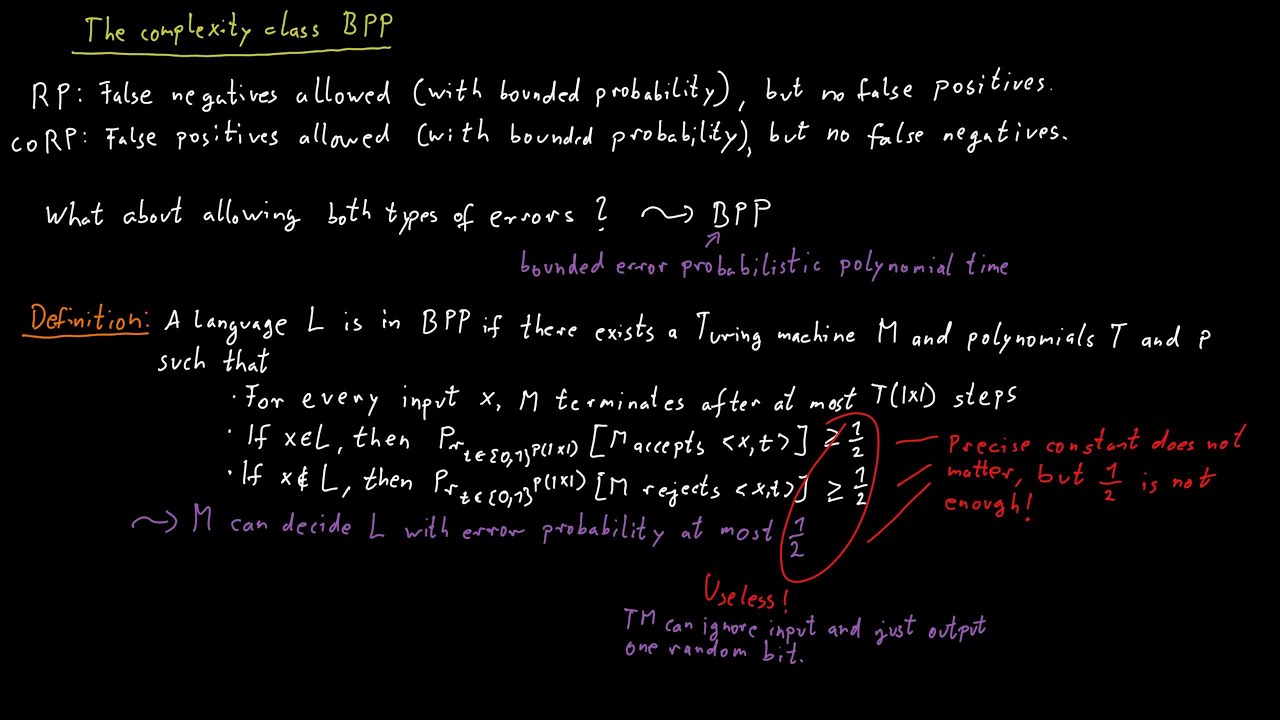 The complexity class BPP
RP: False negatives allowed (with bounded probability), but no false positives.
coRP: False positives allowed (with bounded probability), but no false negatives.
What about allowing both types of errors? ⤳ BPP
bounded error probabilistic polynomial time
Definition: A language L is in BPP if there exists a Turing machine M and polynomials T and p
such that
· For every input x, M terminates after at most T(|x|) steps
· If x∈L, then Pr_{t∈{0,1}^{p(|x|)}} [M accepts <x,t>] ≥ 1/2
· If x∉L, then Pr_{t∈{0,1}^{p(|x|)}} [M rejects <x,t>] ≥ 1/2
⤳ M can decide L with error probability at most 1/2
Precise constant does not
matter, but 1/2 is not
enough!
Useless!
TM can ignore input and just output
one random bit.